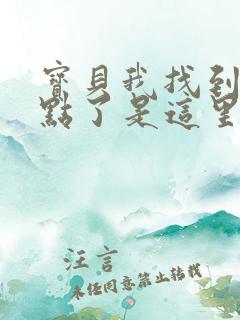 寶貝我找到
點了是這里
汪言
未经同意禁止转载